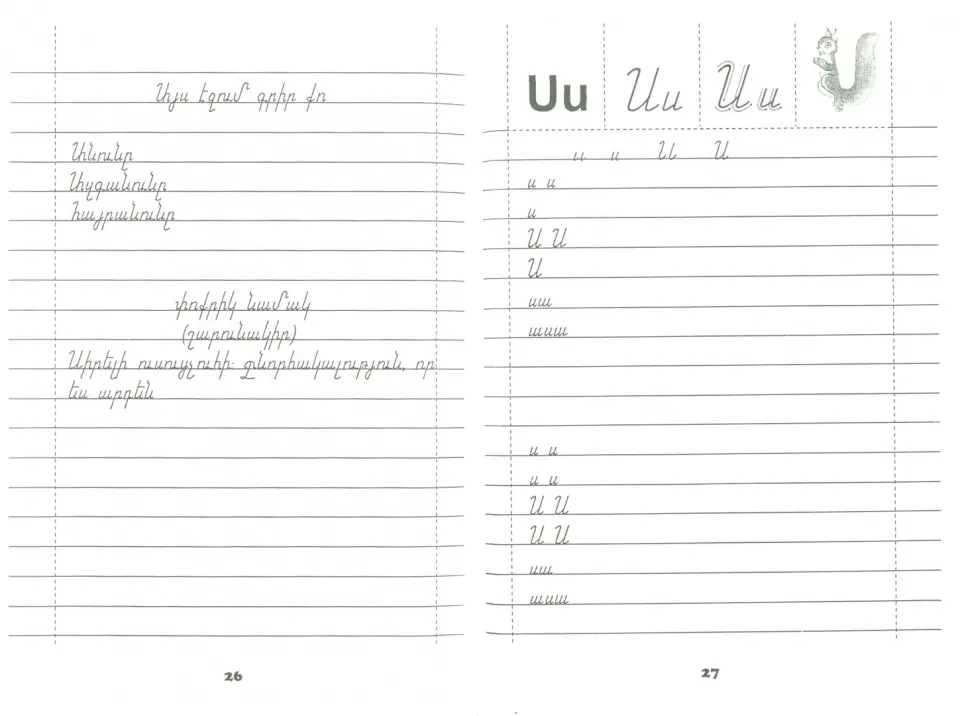 Այս էջում գրիր քո
Անունը
Ազգանունը
հայրանունը
փոքրիկ նամակ
(շարունակիր)
Սիրելի ուսուցչուհի։ Շնորհակալություն, որ
ես արդեն
26
Սս Սս Սս
ս ս Ս Ս
ս ս
ս
Ս Ս
Ս
սա
սաս
ս ս
ս ս
Ս Ս
Ս Ս
սա
սաս
27